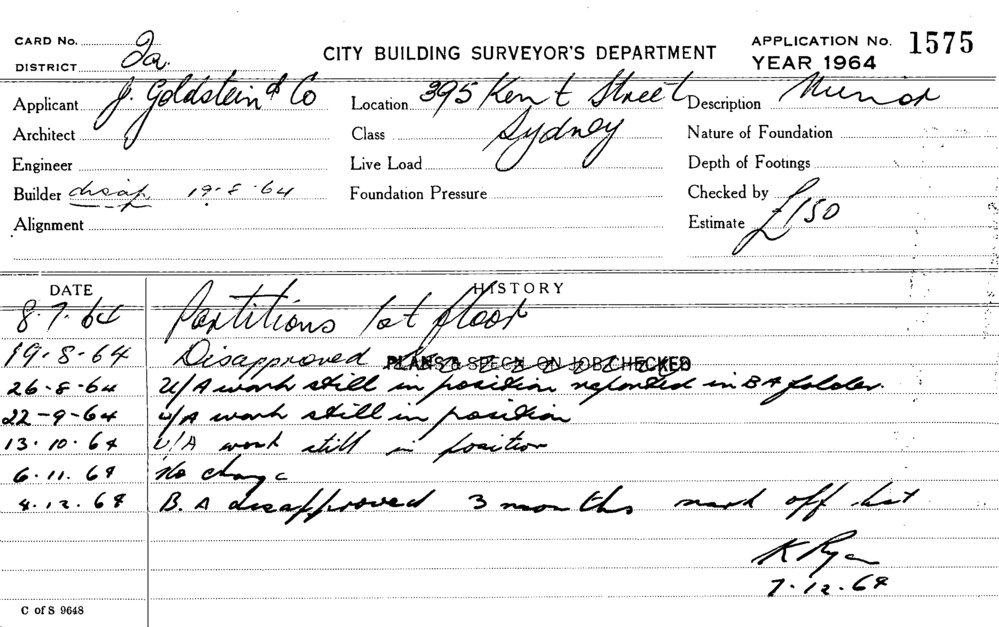 CARD No. 2a.
DISTRICT
CITY BUILDING SURVEYOR'S DEPARTMENT
APPLICATION No. 1575
YEAR 1964
Applicant J. Goldstein & Co
Location 395 Kent Street
Sydney
Description Minor
Architect
Class
Nature of Foundation
Engineer
Live Load
Depth of Footings
Builder disap 19-8-64
Foundation Pressure
Checked by
Alignment
Estimate £150
DATE HISTORY
8.7.64 Partitions 1st floor
19-8-64 Disapproved PLANS & SPECN. ON JOB CHECKED
26-8-64 U/A work still in position reported in BA folder.
22-9-64 U/A work still in position
13.10.64 U/A work still in position
6.11.64 No change
4.12.64 B.A disapproved 3 months mark off list
K Ryan
7.12.64
C of S 9648